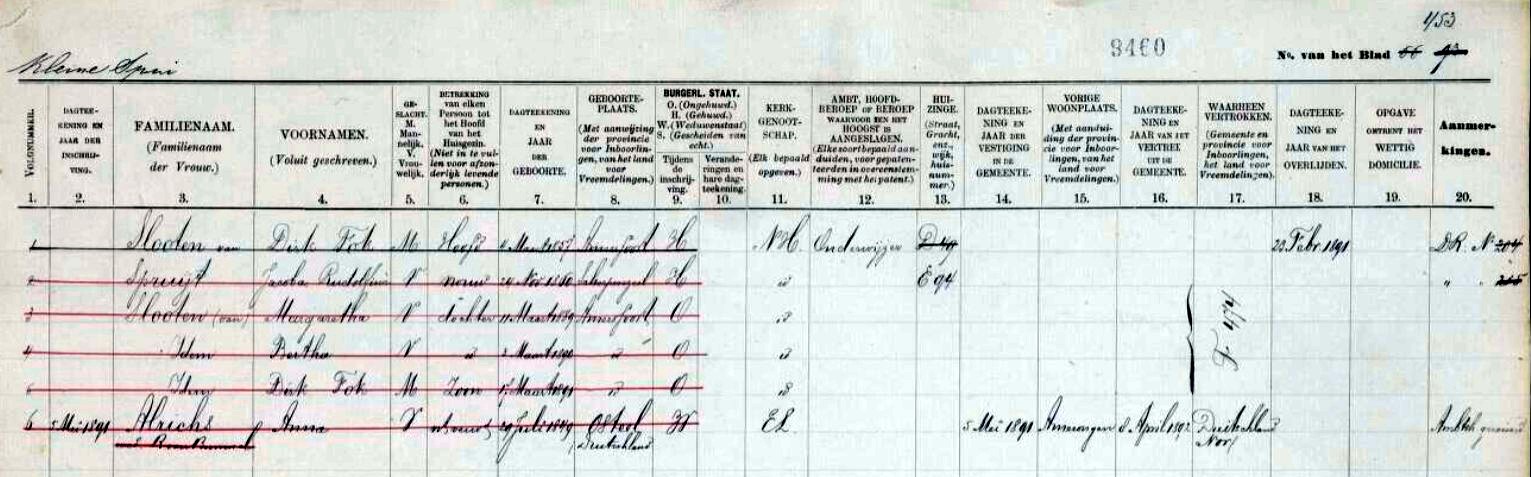 453
8460
Kleine Spui
No. van het Blad 66
VOLGNUMMER.
1.
DAGTEE-
KENING EN
JAAR DER
INSCHRIJ-
VING.
2.
FAMILIENAAM.
(Familienaam
der Vrouw.)
3.
VOORNAMEN.
(Voluit geschreven.)
4.
GE-
SLACHT.
M.
Man-
nelijk,
V.
Vrou-
welijk.
5.
BETREKKING
van elken
Persoon tot
het Hoofd
van het
Huisgezin.
(Niet in te vul-
len voor afzon-
derlijk levende
personen.)
6.
DAGTEEKENING
EN
JAAR
DER
GEBOORTE.
7.
GEBOORTE-
PLAATS.
(Met aanwijzing
der provincie
voor Inboorlin-
gen, van het land
voor
Vreemdelingen.)
8.
BURGERL. STAAT.
O. (Ongehuwd.)
H. (Gehuwd.)
W. (Weduwenstaat)
S. (Gescheiden van
echt.)
Tijdens
de
inschrij-
ving.
9.
Verande-
ringen en
hare dag-
teekening.
10.
KERK-
GENOOT-
SCHAP.
(Elk bepaald
opgeven.)
11.
AMBT, HOOFD-
BEROEP OF BEROEP
WAARVOOR EEN HET
HOOGST IS
AANGESLAGEN.
(Elke soort bepaald aan-
duiden, voor gepaten-
teerden in overeenstem-
ming met het patent.)
12.
HUI-
ZINGE.
(Straat,
Gracht,
enz.,
wijk,
huis-
num-
mer.)
13.
DAGTEEKE-
NING EN
JAAR DER
VESTIGING
IN DE
GEMEENTE.
14.
VORIGE
WOONPLAATS.
(Met aandui-
ding der provin-
cie voor Inboor-
lingen, van het
land voor
Vreemdelingen.)
15.
DAGTEEKE-
NING EN
JAAR VAN HET
VERTREK
UIT DE
GEMEENTE.
16.
WAARHEEN
VERTROKKEN.
(Gemeente en
provincie voor
Inboorlingen,
het land voor
Vreemdelingen).
17.
DAGTEEKE-
NING EN
JAAR VAN HET
OVERLIJDEN.
18.
OPGAVE
OMTRENT HET
WETTIG
DOMICILIE.
19.
Aanmer-
kingen.
20.
1 Hooten van Dirk Fok M Hoofd Maart 1857 Amersfoort H N H Onderwijzer D 49 23 Febr. 1891 D.R. No 204
2 Spruijt Jacoba Rudolfina V vrouw 29 Nov 1860 Scherpenzeel H " E 94 " " 215
3 Hooten (van) Margaretha V dochter 11 Maart 1889 Amersfoort O "
4 Idem Bertha V " Maart 1890 " O "
F 474
5 Idem Dirk Fok M Zoon Maart 1891 " O "
6 5 Mei 1891 Alrichs Anna V 29 Juli 1849 Osteel W E L 5 Mei 1891 Amerongen 8 April 1892 Duitschland
Deutschland Nor